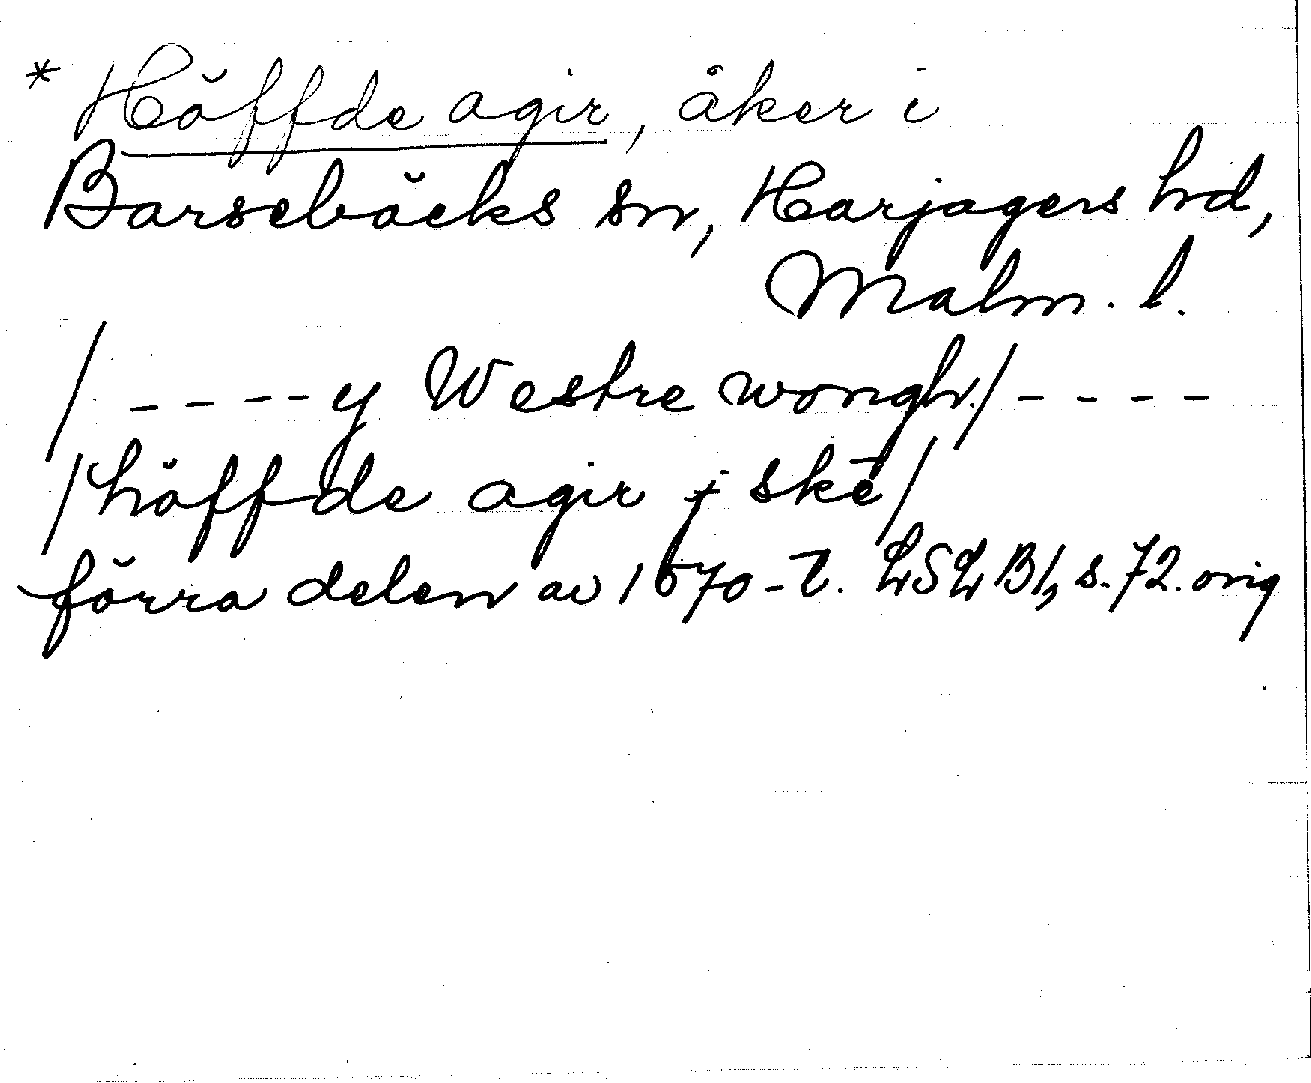 * Höffde agir, åker i
Barsebäcks sn, Harjagers hd,
Malm. l.
/ - - - - y Westre wongh / - - - -
/ höffde agir j skē /
förra delen av 1570-t. LSLB1, s. 72. orig